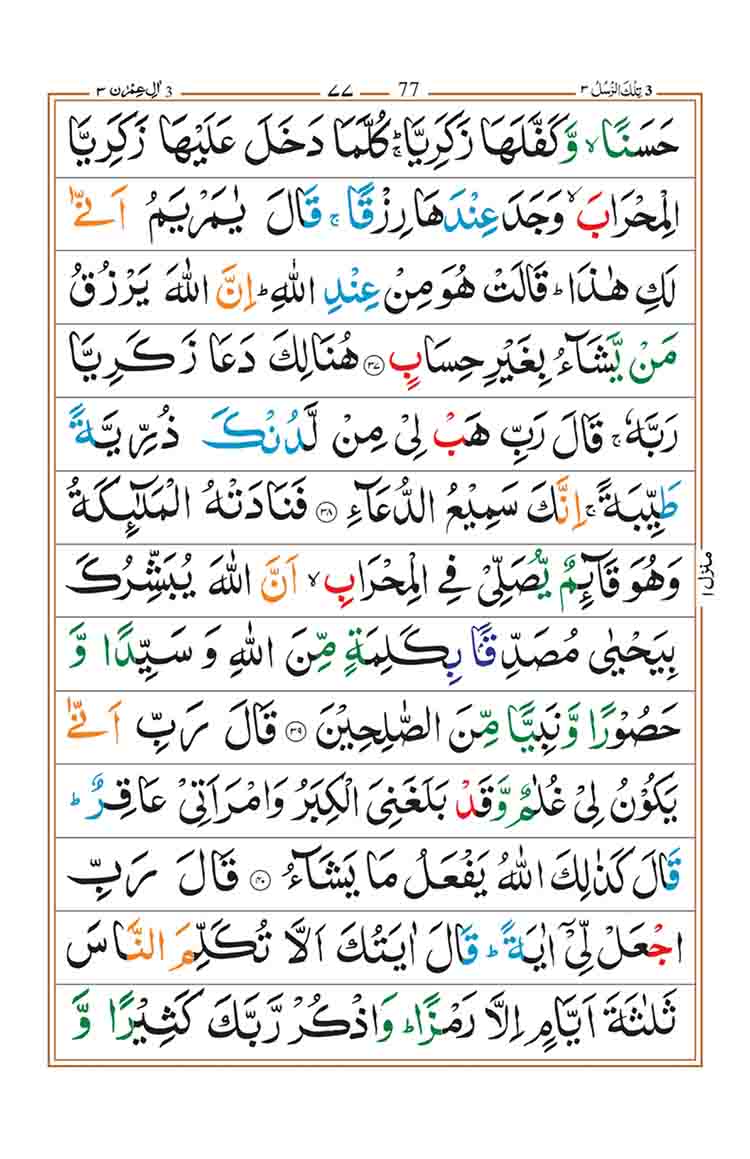 3 تِلْكَ الرُّسُلُ ٣
77 ٧٧
3 اٰلِ عِمْرٰن ٣
حَسَنًا ۙ وَّ كَفَّلَهَا زَكَرِيَّا ؕۚ كُلَّمَا دَخَلَ عَلَيْهَا زَكَرِيَّا
الْمِحْرَابَ ۙ وَجَدَ عِنْدَهَا رِزْقًا ۚ قَالَ يٰمَرْيَمُ اَنّٰى
لَكِ هٰذَا ؕ قَالَتْ هُوَ مِنْ عِنْدِ اللّٰهِ ؕ اِنَّ اللّٰهَ يَرْزُقُ
مَنْ يَّشَآءُ بِغَيْرِ حِسَابٍ ﴿۳۷﴾ هُنَالِكَ دَعَا زَكَرِيَّا
رَبَّهٗ ۚ قَالَ رَبِّ هَبْ لِىْ مِنْ لَّدُنْكَ ذُرِّيَّةً
طَيِّبَةً ۚ اِنَّكَ سَمِيْعُ الدُّعَآءِ ﴿۳۸﴾ فَنَادَتْهُ الْمَلٰٓئِكَةُ
وَهُوَ قَآئِمٌ يُّصَلِّىْ فِى الْمِحْرَابِ ۙ اَنَّ اللّٰهَ يُبَشِّرُكَ
بِيَحْيٰى مُصَدِّقًۢا بِكَلِمَةٍ مِّنَ اللّٰهِ وَ سَيِّدًا وَّ
حَصُوْرًا وَّ نَبِيًّا مِّنَ الصّٰلِحِيْنَ ﴿۳۹﴾ قَالَ رَبِّ اَنّٰى
يَكُوْنُ لِىْ غُلٰمٌ وَّقَدْ بَلَغَنِىَ الْكِبَرُ وَامْرَاَتِىْ عَاقِرٌ ؕ
قَالَ كَذٰلِكَ اللّٰهُ يَفْعَلُ مَا يَشَآءُ ﴿۴۰﴾ قَالَ رَبِّ
اجْعَلْ لِّىْٓ اٰيَةً ؕ قَالَ اٰيَتُكَ اَلَّا تُكَلِّمَ النَّاسَ
ثَلٰثَةَ اَيَّامٍ اِلَّا رَمْزًا ؕ وَاذْكُرْ رَّبَّكَ كَثِيْرًا وَّ
منزل ١